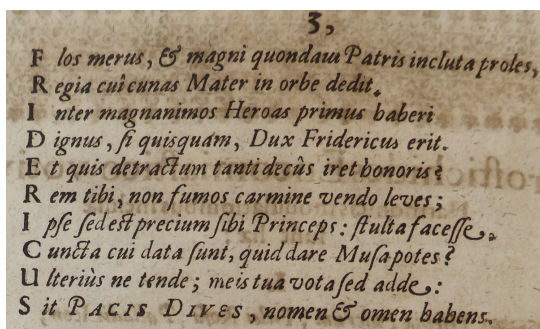 3,
F los merus, & magni quondam Patris incluta proles,
R egia cui cunas Mater in orbe dedit.
I nter magnanimos Heroas primus haberi
D ignus, si quisquam, Dux Fridericus erit.
E t quis detractum tanti decûs iret honoris?
R em tibi, non fumos carmine vendo leves;
I pse sed est precium sibi Princeps: stulta facesse.
C uncta cui data sunt, quid dare Musa potes?
U lteriùs ne tende; meis tua vota sed adde:
S it PACIS DIVES, nomen & omen habens.